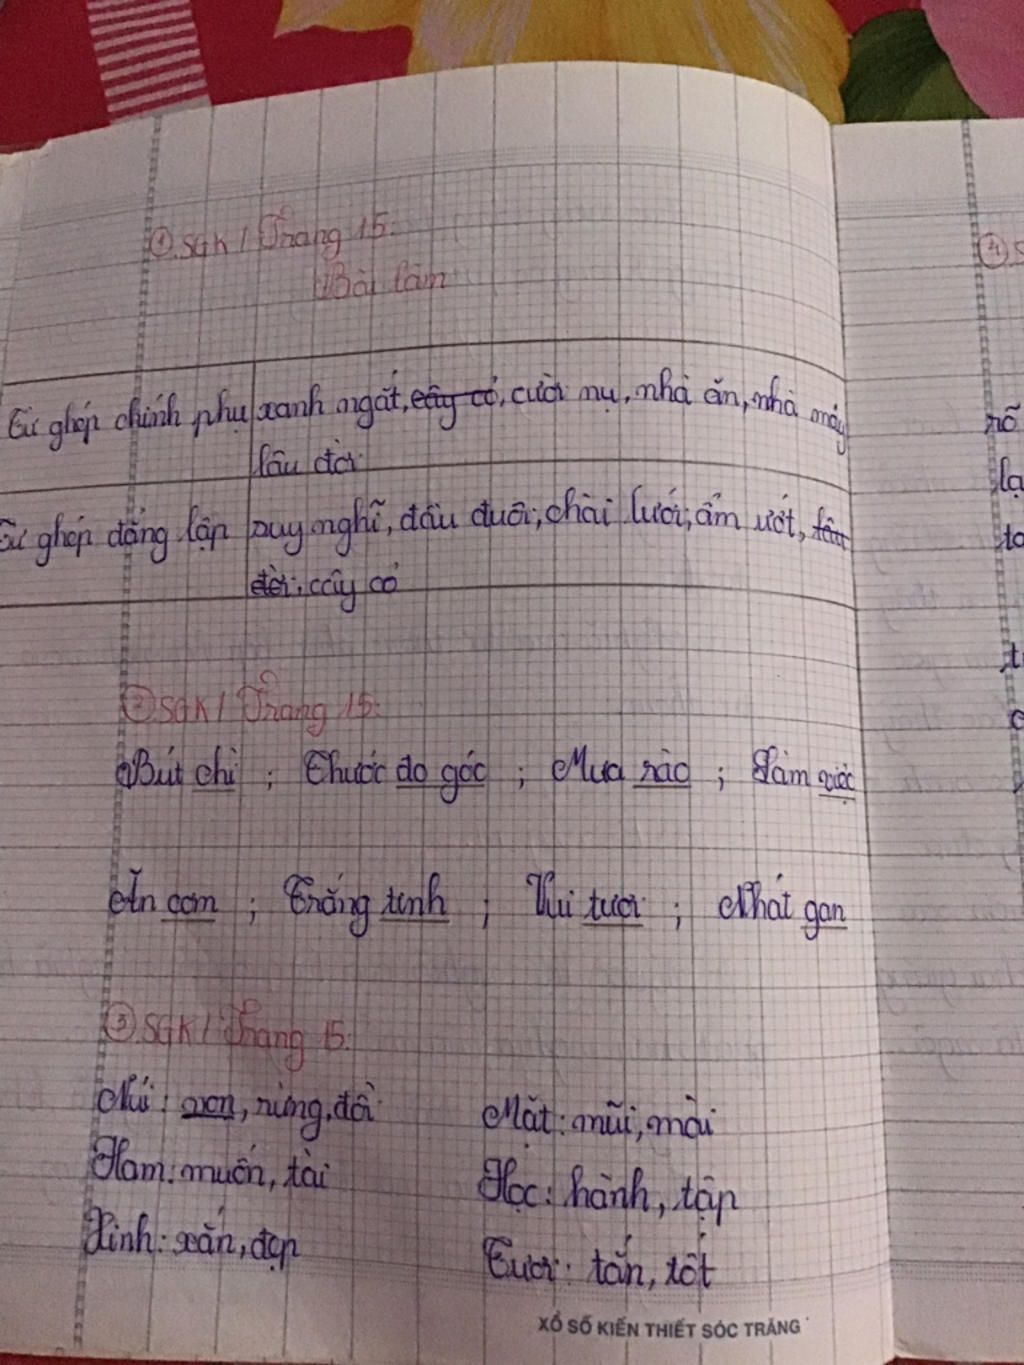 ①.SGK / Trang 15:
Bài làm
Từ ghép chính phụ xanh ngắt, cây cỏ, cười nụ, nhà ăn, nhà máy
lâu đời
Từ ghép đẳng lập suy nghĩ, đầu đuôi, chài lưới, ẩm ướt, lâu
đời, cây cỏ
②SGK / Trang 15:
Bút chì ; Thước đo góc ; Mưa rào ; Làm việc
Ăn cơm ; Trắng tinh ; Vui tươi ; Nhát gan
③SGK / Trang 15:
Núi: non, rừng, đồi Mặt: mũi, mài
Ham: muốn, tài Học: hành, tập
Xinh: xắn, đẹp Tươi: tắn, tốt
XỔ SỐ KIẾN THIẾT SÓC TRĂNG
④S
lạ